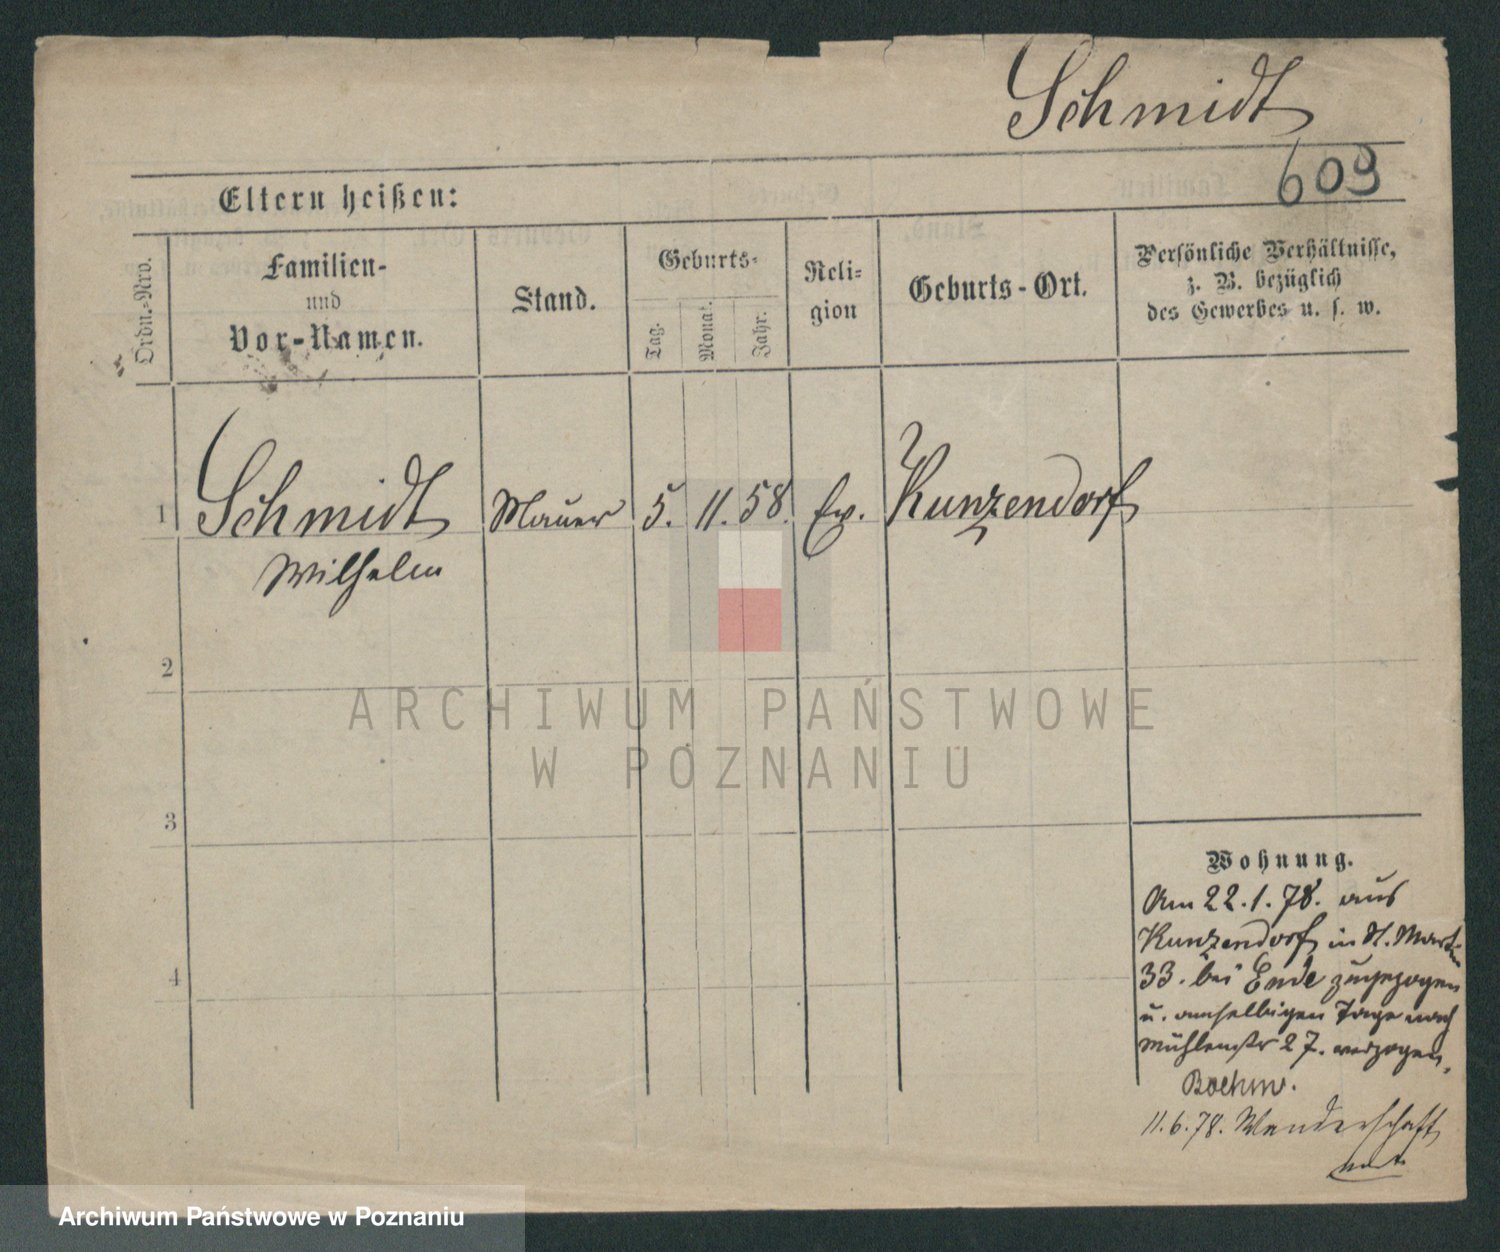 Schmidt
609
Eltern heißen:
Ordn.-Nro.
Familien-
und
Vor-Namen.
Stand.
Geburts-
Tag.
Monat.
Jahr.
Reli-
gion
Geburts-Ort.
Persönliche Verhältnisse,
z. B. bezüglich
des Gewerbes u. s. w.
1 Schmidt Maurer 5. 11. 58. Ev. Kunzendorf
Wilhelm
2
3
4
ARCHIWUM PAŃSTWOWE
W POZNANIU
Wohnung.
Am 22.1.78. aus
Kunzendorf in St. Martin
33. bei Ende zugezogen
u. am selbigen Tage nach
Mühlenstr 27. verzogen.
Boehm.
11.6.78. Wanderschaft
Archiwum Państwowe w Poznaniu